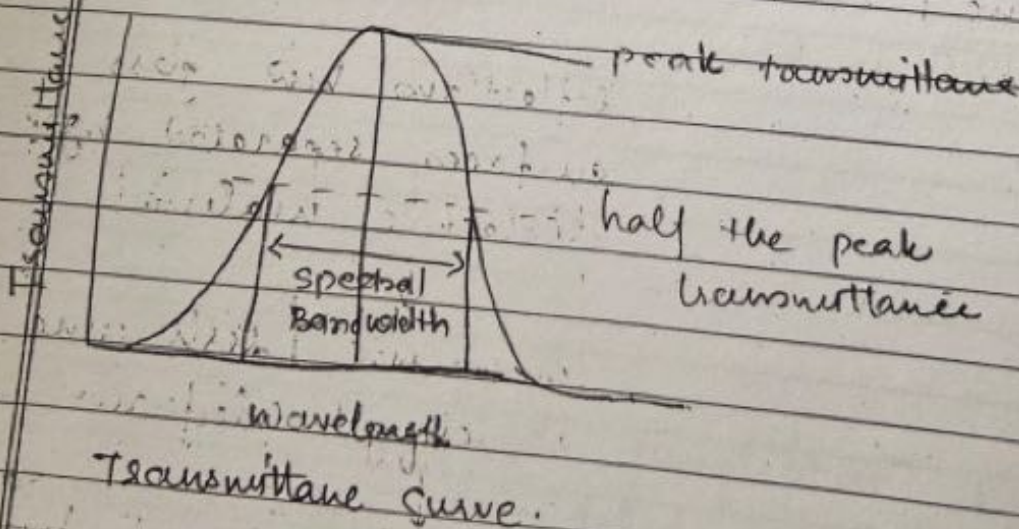 Transmittane
peak transmittane
half the peak
transmittance
Spectral
Bandwidth
wavelength
Transmittane Curve.